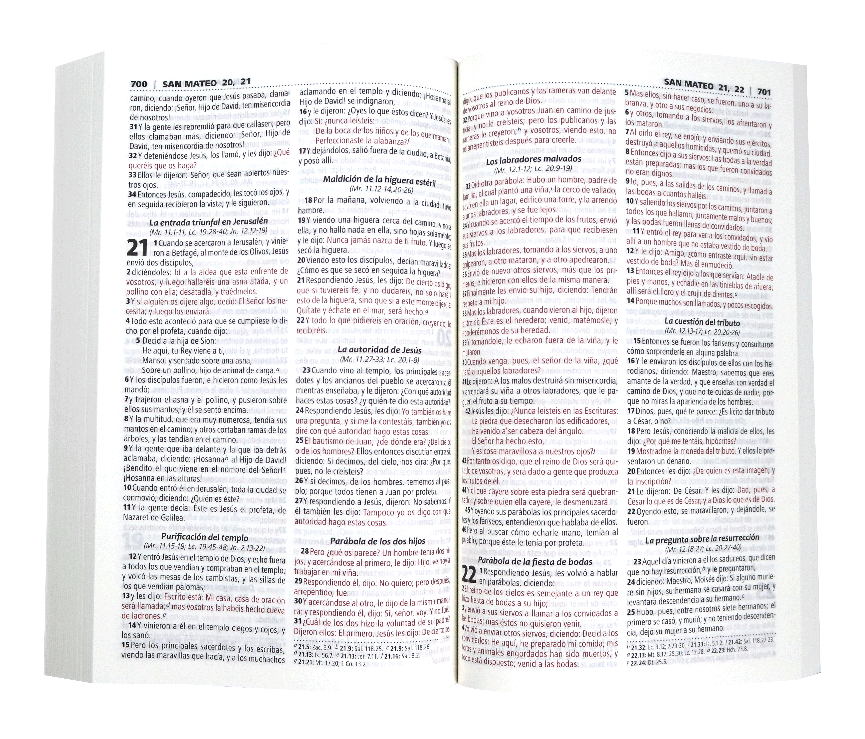 700 | SAN MATEO 20, 21
camino, cuando oyeron que Jesús pasaba, clama-
ron, diciendo: ¡Señor, Hijo de David, ten misericordia
de nosotros!
31 Y la gente les reprendió para que callasen; pero
ellos clamaban más, diciendo: ¡Señor, Hijo de
David, ten misericordia de nosotros!
32 Y deteniéndose Jesús, los llamó, y les dijo: ¿Qué
queréis que os haga?
33 Ellos le dijeron: Señor, que sean abiertos nues-
tros ojos.
34 Entonces Jesús, compadecido, les tocó los ojos, y
en seguida recibieron la vista; y le siguieron.
La entrada triunfal en Jerusalén
(Mr. 11.1-11; Lc. 19.28-40; Jn. 12.12-19)
21 1 Cuando se acercaron a Jerusalén, y vinie-
ron a Betfagé, al monte de los Olivos, Jesús
envió dos discípulos,
2 diciéndoles: Id a la aldea que está enfrente de
vosotros, y luego hallaréis una asna atada, y un
pollino con ella; desatadla, y traédmelos.
3 Y si alguien os dijere algo, decid: El Señor los ne-
cesita; y luego los enviará.
4 Todo esto aconteció para que se cumpliese lo di-
cho por el profeta, cuando dijo:
5 Decid a la hija de Sion:
He aquí, tu Rey viene a ti,
Manso, y sentado sobre una asna,
Sobre un pollino, hijo de animal de carga.
6 Y los discípulos fueron, e hicieron como Jesús les
mandó;
7 y trajeron el asna y el pollino, y pusieron sobre
ellos sus mantos; y él se sentó encima.
8 Y la multitud, que era muy numerosa, tendía sus
mantos en el camino; y otros cortaban ramas de los
árboles, y las tendían en el camino.
9 Y la gente que iba delante y la que iba detrás
aclamaba, diciendo: ¡Hosanna al Hijo de David!
¡Bendito el que viene en el nombre del Señor!
¡Hosanna en las alturas!
10 Cuando entró él en Jerusalén, toda la ciudad se
conmovió, diciendo: ¿Quién es éste?
11 Y la gente decía: Este es Jesús el profeta, de
Nazaret de Galilea.
Purificación del templo
(Mr. 11.15-19; Lc. 19.45-48; Jn. 2.13-22)
12 Y entró Jesús en el templo de Dios, y echó fuera
a todos los que vendían y compraban en el templo,
y volcó las mesas de los cambistas, y las sillas de
los que vendían palomas;
13 y les dijo: Escrito está: Mi casa, casa de oración
será llamada; mas vosotros la habéis hecho cueva
de ladrones.
14 Y vinieron a él en el templo ciegos y cojos, y
los sanó.
15 Pero los principales sacerdotes y los escribas,
viendo las maravillas que hacía, y a los muchachos
aclamando en el templo y diciendo: ¡Hosanna al
Hijo de David! se indignaron,
16 y le dijeron: ¿Oyes lo que éstos dicen? Y Jesús
dijo: Sí; ¿nunca leísteis:
De la boca de los niños y de los que maman
Perfeccionaste la alabanza?
17 Y dejándolos, salió fuera de la ciudad, a Betania,
y posó allí.
Maldición de la higuera estéril
(Mr. 11.12-14,20-26)
18 Por la mañana, volviendo a la ciudad, tuvo
hambre.
19 Y viendo una higuera cerca del camino, vino a
ella, y no halló nada en ella, sino hojas solamente;
y le dijo: Nunca jamás nazca de ti fruto. Y luego se
secó la higuera.
20 Viendo esto los discípulos, decían maravillados:
¿Cómo es que se secó en seguida la higuera?
21 Respondiendo Jesús, les dijo: De cierto os digo,
que si tuviereis fe, y no dudareis, no sólo haréis
esto de la higuera, sino que si a este monte dijereis:
Quítate y échate en el mar, será hecho.
22 Y todo lo que pidiereis en oración, creyendo, lo
recibiréis.
La autoridad de Jesús
(Mr. 11.27-33; Lc. 20.1-8)
23 Cuando vino al templo, los principales sacer-
dotes y los ancianos del pueblo se acercaron a él
mientras enseñaba, y le dijeron: ¿Con qué autoridad
haces estas cosas? ¿y quién te dio esta autoridad?
24 Respondiendo Jesús, les dijo: Yo también os haré
una pregunta, y si me la contestáis, también yo os
diré con qué autoridad hago estas cosas.
25 El bautismo de Juan, ¿de dónde era? ¿Del cielo,
o de los hombres? Ellos entonces discutían entre sí,
diciendo: Si decimos, del cielo, nos dirá: ¿Por qué,
pues, no le creísteis?
26 Y si decimos, de los hombres, tememos al pue-
blo; porque todos tienen a Juan por profeta.
27 Y respondiendo a Jesús, dijeron: No sabemos. Y
él también les dijo: Tampoco yo os digo con qué
autoridad hago estas cosas.
Parábola de los dos hijos
28 Pero ¿qué os parece? Un hombre tenía dos hi-
jos, y acercándose al primero, le dijo: Hijo, ve hoy a
trabajar en mi viña.
29 Respondiendo él, dijo: No quiero; pero después,
arrepentido, fue.
30 Y acercándose al otro, le dijo de la misma mane-
ra; y respondiendo él, dijo: Sí, señor, voy. Y no fue.
31 ¿Cuál de los dos hizo la voluntad de su padre?
Dijeron ellos: El primero. Jesús les dijo: De cierto os
21.5: Zac. 9.9. 21.9: Sal. 118.25. 21.9: Sal. 118.26.
21.13: Is. 56.7. 21.13: Jer. 7.11. 21.16: Sal. 8.2.
21.21: Mt. 17.20; 1 Co. 13.2.
SAN MATEO 21, 22 | 701
digo, que los publicanos y las rameras van delante
de vosotros al reino de Dios.
32 Porque vino a vosotros Juan en camino de jus-
ticia, y no le creísteis; pero los publicanos y las
rameras le creyeron; y vosotros, viendo esto, no
os arrepentisteis después para creerle.
Los labradores malvados
(Mr. 12.1-12; Lc. 20.9-19)
33 Oíd otra parábola: Hubo un hombre, padre de
familia, el cual plantó una viña, la cercó de vallado,
cavó en ella un lagar, edificó una torre, y la arrendó
a unos labradores, y se fue lejos.
34 Y cuando se acercó el tiempo de los frutos, envió
sus siervos a los labradores, para que recibiesen
sus frutos.
35 Mas los labradores, tomando a los siervos, a uno
golpearon, a otro mataron, y a otro apedrearon.
36 Envió de nuevo otros siervos, más que los pri-
meros; e hicieron con ellos de la misma manera.
37 Finalmente les envió su hijo, diciendo: Tendrán
respeto a mi hijo.
38 Mas los labradores, cuando vieron al hijo, dijeron
entre sí: Este es el heredero; venid, matémosle, y
apoderémonos de su heredad.
39 Y tomándole, le echaron fuera de la viña, y le
mataron.
40 Cuando venga, pues, el señor de la viña, ¿qué
hará a aquellos labradores?
41 Le dijeron: A los malos destruirá sin misericordia,
y arrendará su viña a otros labradores, que le pa-
guen el fruto a su tiempo.
42 Jesús les dijo: ¿Nunca leísteis en las Escrituras:
La piedra que desecharon los edificadores,
Ha venido a ser cabeza del ángulo.
El Señor ha hecho esto,
Y es cosa maravillosa a nuestros ojos?
43 Por tanto os digo, que el reino de Dios será qui-
tado de vosotros, y será dado a gente que produzca
los frutos de él.
44 Y el que cayere sobre esta piedra será quebran-
tado; y sobre quien ella cayere, le desmenuzará.
45 Y oyendo sus parábolas los principales sacerdo-
tes y los fariseos, entendieron que hablaba de ellos.
46 Pero al buscar cómo echarle mano, temían al
pueblo, porque éste le tenía por profeta.
Parábola de la fiesta de bodas
22 1 Respondiendo Jesús, les volvió a hablar
en parábolas, diciendo:
2 El reino de los cielos es semejante a un rey que
hizo fiesta de bodas a su hijo;
3 y envió a sus siervos a llamar a los convidados a
las bodas; mas éstos no quisieron venir.
4 Volvió a enviar otros siervos, diciendo: Decid a los
convidados: He aquí, he preparado mi comida; mis
toros y animales engordados han sido muertos, y
todo está dispuesto; venid a las bodas.
5 Mas ellos, sin hacer caso, se fueron, uno a su la-
branza, y otro a sus negocios;
6 y otros, tomando a los siervos, los afrentaron y
los mataron.
7 Al oírlo el rey, se enojó; y enviando sus ejércitos,
destruyó a aquellos homicidas, y quemó su ciudad.
8 Entonces dijo a sus siervos: Las bodas a la verdad
están preparadas; mas los que fueron convidados
no eran dignos.
9 Id, pues, a las salidas de los caminos, y llamad a
las bodas a cuantos halléis.
10 Y saliendo los siervos por los caminos, juntaron a
todos los que hallaron, juntamente malos y buenos;
y las bodas fueron llenas de convidados.
11 Y entró el rey para ver a los convidados, y vio
allí a un hombre que no estaba vestido de boda.
12 Y le dijo: Amigo, ¿cómo entraste aquí, sin estar
vestido de boda? Mas él enmudeció.
13 Entonces el rey dijo a los que servían: Atadle de
pies y manos, y echadle en las tinieblas de afuera;
allí será el lloro y el crujir de dientes.
14 Porque muchos son llamados, y pocos escogidos.
La cuestión del tributo
(Mr. 12.13-17; Lc. 20.20-26)
15 Entonces se fueron los fariseos y consultaron
cómo sorprenderle en alguna palabra.
16 Y le enviaron los discípulos de ellos con los he-
rodianos, diciendo: Maestro, sabemos que eres
amante de la verdad, y que enseñas con verdad el
camino de Dios, y que no te cuidas de nadie, por-
que no miras la apariencia de los hombres.
17 Dinos, pues, qué te parece: ¿Es lícito dar tributo
a César, o no?
18 Pero Jesús, conociendo la malicia de ellos, les
dijo: ¿Por qué me tentáis, hipócritas?
19 Mostradme la moneda del tributo. Y ellos le pre-
sentaron un denario.
20 Entonces les dijo: ¿De quién es esta imagen, y
la inscripción?
21 Le dijeron: De César. Y les dijo: Dad, pues, a
César lo que es de César, y a Dios lo que es de Dios.
22 Oyendo esto, se maravillaron, y dejándole, se
fueron.
La pregunta sobre la resurrección
(Mr. 12.18-27; Lc. 20.27-40)
23 Aquel día vinieron a él los saduceos, que dicen
que no hay resurrección, y le preguntaron,
24 diciendo: Maestro, Moisés dijo: Si alguno murie-
re sin hijos, su hermano se casará con su mujer, y
levantará descendencia a su hermano.
25 Hubo, pues, entre nosotros siete hermanos; el
primero se casó, y murió; y no teniendo descenden-
cia, dejó su mujer a su hermano.